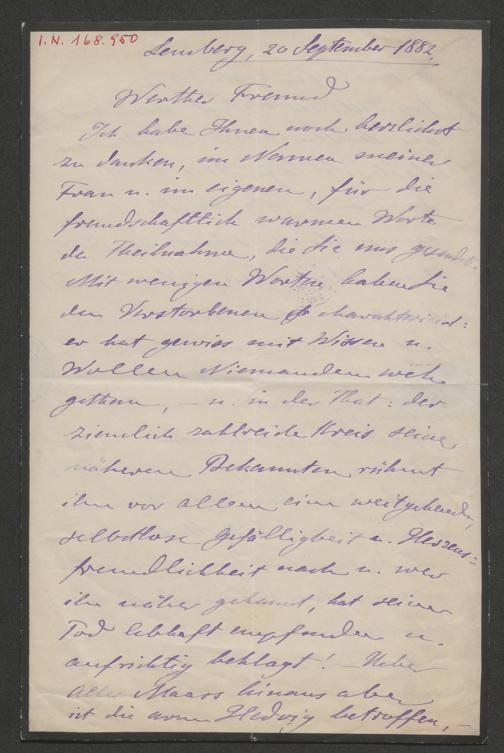 I.N. 168.950
Lemberg, 20 September 1882.
Werther Freund
Ich habe Ihnen noch herzlichst
zu danken, im Namen meiner
Frau u. im eigenen, für die
freundschaftlich warmen Worte
der Theilnahme, die Sie uns gesendet.
Mit wenigen Worten haben Sie
den Verstorbenen charakterisirt:
er hat gewiss mit Wissen u.
Wollen Niemandem weh
gethan, – u. in der That: der
ziemlich zahlreiche Kreis seiner
näheren Bekannten rühmt
ihm vor allem eine weitgehende,
selbstlose Gefälligkeit u. Herzens-
freundlichkeit nach u. wer
ihn näher gekannt, hat seinen
Tod lebhaft empfunden u.
aufrichtig beklagt! – Ueber
alles Maass hinaus aber
ist die arme Hedwig betroffen, –